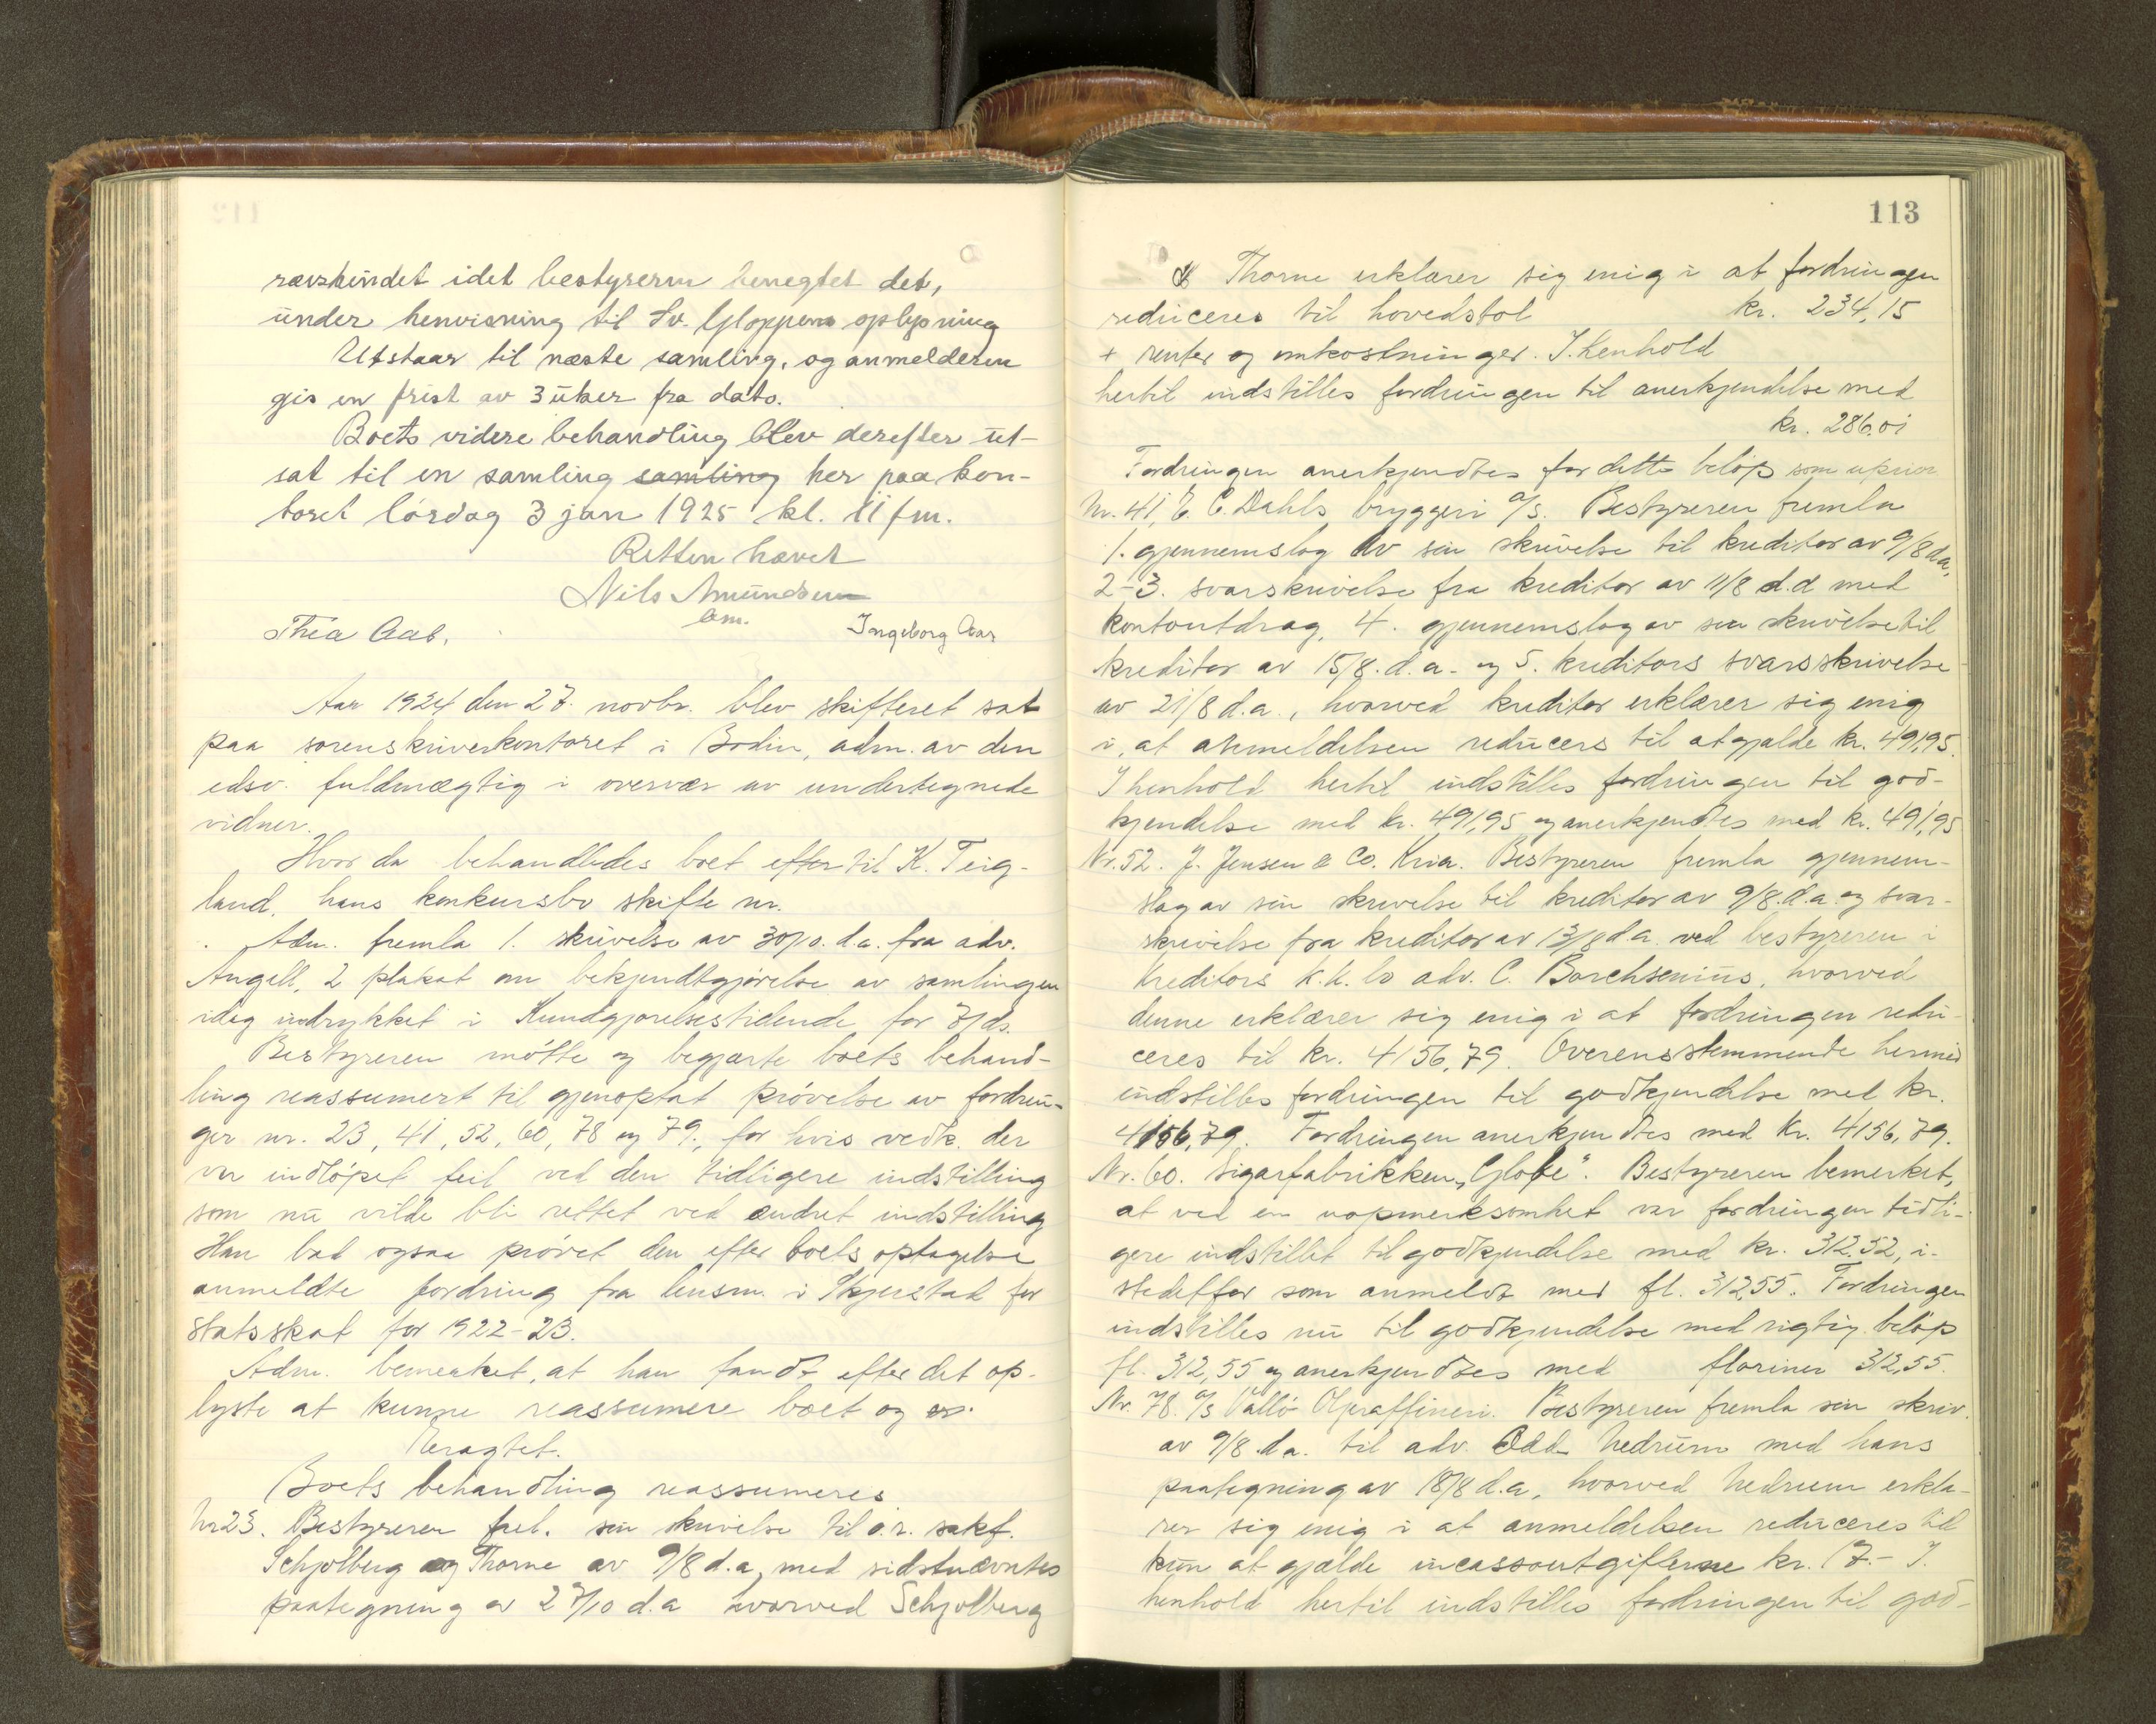 rævskindet idet bestyreren benegtet det,
under henvisning til Sv. Gloppens oplysning
Utstaar til næste samling, og anmelderen
gis en frist av 3 uker fra dato.
Boets videre behandling blev derefter ut-
sat til en samling samling her paa kon-
toret lørdag 3 jan 1925 kl. 11 fm.
Retten hævet
Nils Amundsen
Thea Aab.
Ingeborg Aas
Aar 1924 den 27. novbr. blev skifteret sat
paa sorenskriverkontoret i Bodin, adm. av den
edsv. fuldmægtig i overvær av undertegnede
vidner.
Hvor da behandledes boet efter til K. Teig-
land, hans konkursbo skifte nr.
Adm. fremla 1. skrivelse av 30/10. d.a. fra adv.
Angell, 2 plakat om bekjendtgjørelse av samlingen
idag indrykket i Kundgjørelsestidende for 7/ds.
Bestyreren møtte og begjærte boets behand-
ling reassumert til gjenoptat prøvelse av fordrin-
ger nr. 23, 41, 52, 60, 78 og 79, for hvis vedk. der
var indløpet feil ved den tidligere indstilling
som nu vilde bli rettet ved ændret indstilling
Han bad ogsaa prøvet den efter boets optagelse
anmeldte fordring fra lensm. i Skjerstad for
statsskat for 1922-23.
Adm. bemerket, at han fandt efter det op-
lyste at kunne reassumere boet og
Eragtet.
Boets behandling reassumeres
Nr 23. Bestyreren frel. sin skrivelse til o.r. sakf.
Schjølberg og Thorne av 9/8 d.a, med sidstnævntes
paategning av 27/10 d.a hvorved Schjølberg
113
& Thorne erklærer sig enig i at fordringen
reduceres til hovedstol kr. 234,15
+ renter og omkostninger. I henhold
hertil indstilles fordringen til anerkjendelse med
kr. 286,01
Fordringen anerkjendtes for dette beløp som uprior
Nr. 41, E. C. Dahls bryggeri A/S. Bestyreren fremla
1. gjennemslag av sin skrivelse til kreditor av 9/8 d.a,
2-3. svarskrivelse fra kreditor av 11/8 d.d med
kontoutdrag, 4. gjennemslag av sin skrivelse til
kreditor av 15/8. d.a. og 5. kreditors svarsskrivelse
av 21/8 d.a., hvorved kreditor erklærer sig enig
i, at anmeldelsen reducers til at gjælde kr. 491,95.
I henhold hertil indstilles fordringen til god-
kjendelse med kr. 491,95 og anerkjendtes med kr. 491,95
Nr. 52. J. Jensen & Co. Kria. Bestyreren fremla gjennem-
slag av sin skrivelse til kreditor av 9/8. d.a. og svar-
skrivelse fra kreditor av 13/8 d.a. ved bestyreren i
kreditors k.k. bo adv. C. Borchsenius, hvorved
denne erklærer sig enig i at fordringen redu-
ceres til kr. 4156,79. Overensstemmende hermed
indstilles fordringen til godkjendelse med kr.
4156,79. Fordringen anerkjendtes med kr. 4156,79.
Nr. 60. Sigarfabrikken „Globe". Bestyreren bemerket,
at ved en uopmerksomhet var fordringen tidli-
gere indstillet til godkjendelse med kr. 312,52, i-
stedetfor som anmeldt med fl. 312,55. Fordringen
indstilles nu til godkjendelse med rigtig beløp
fl. 312,55 og anerkjendtes med floriner 312,55.
Nr. 78. A/S Vallø Oljeraffineri. Bestyreren fremla sin skriv.
av 9/8 d.a. til adv. Odd Hedrum med hans
paategning av 18/8 d.a, hvorved Hedrum erklæ-
rer sig enig i at anmeldelsen reduceres til
kun at gjælde incassoutgifterne kr. 17.- I
henhold hertil indstilles fordringen til god-